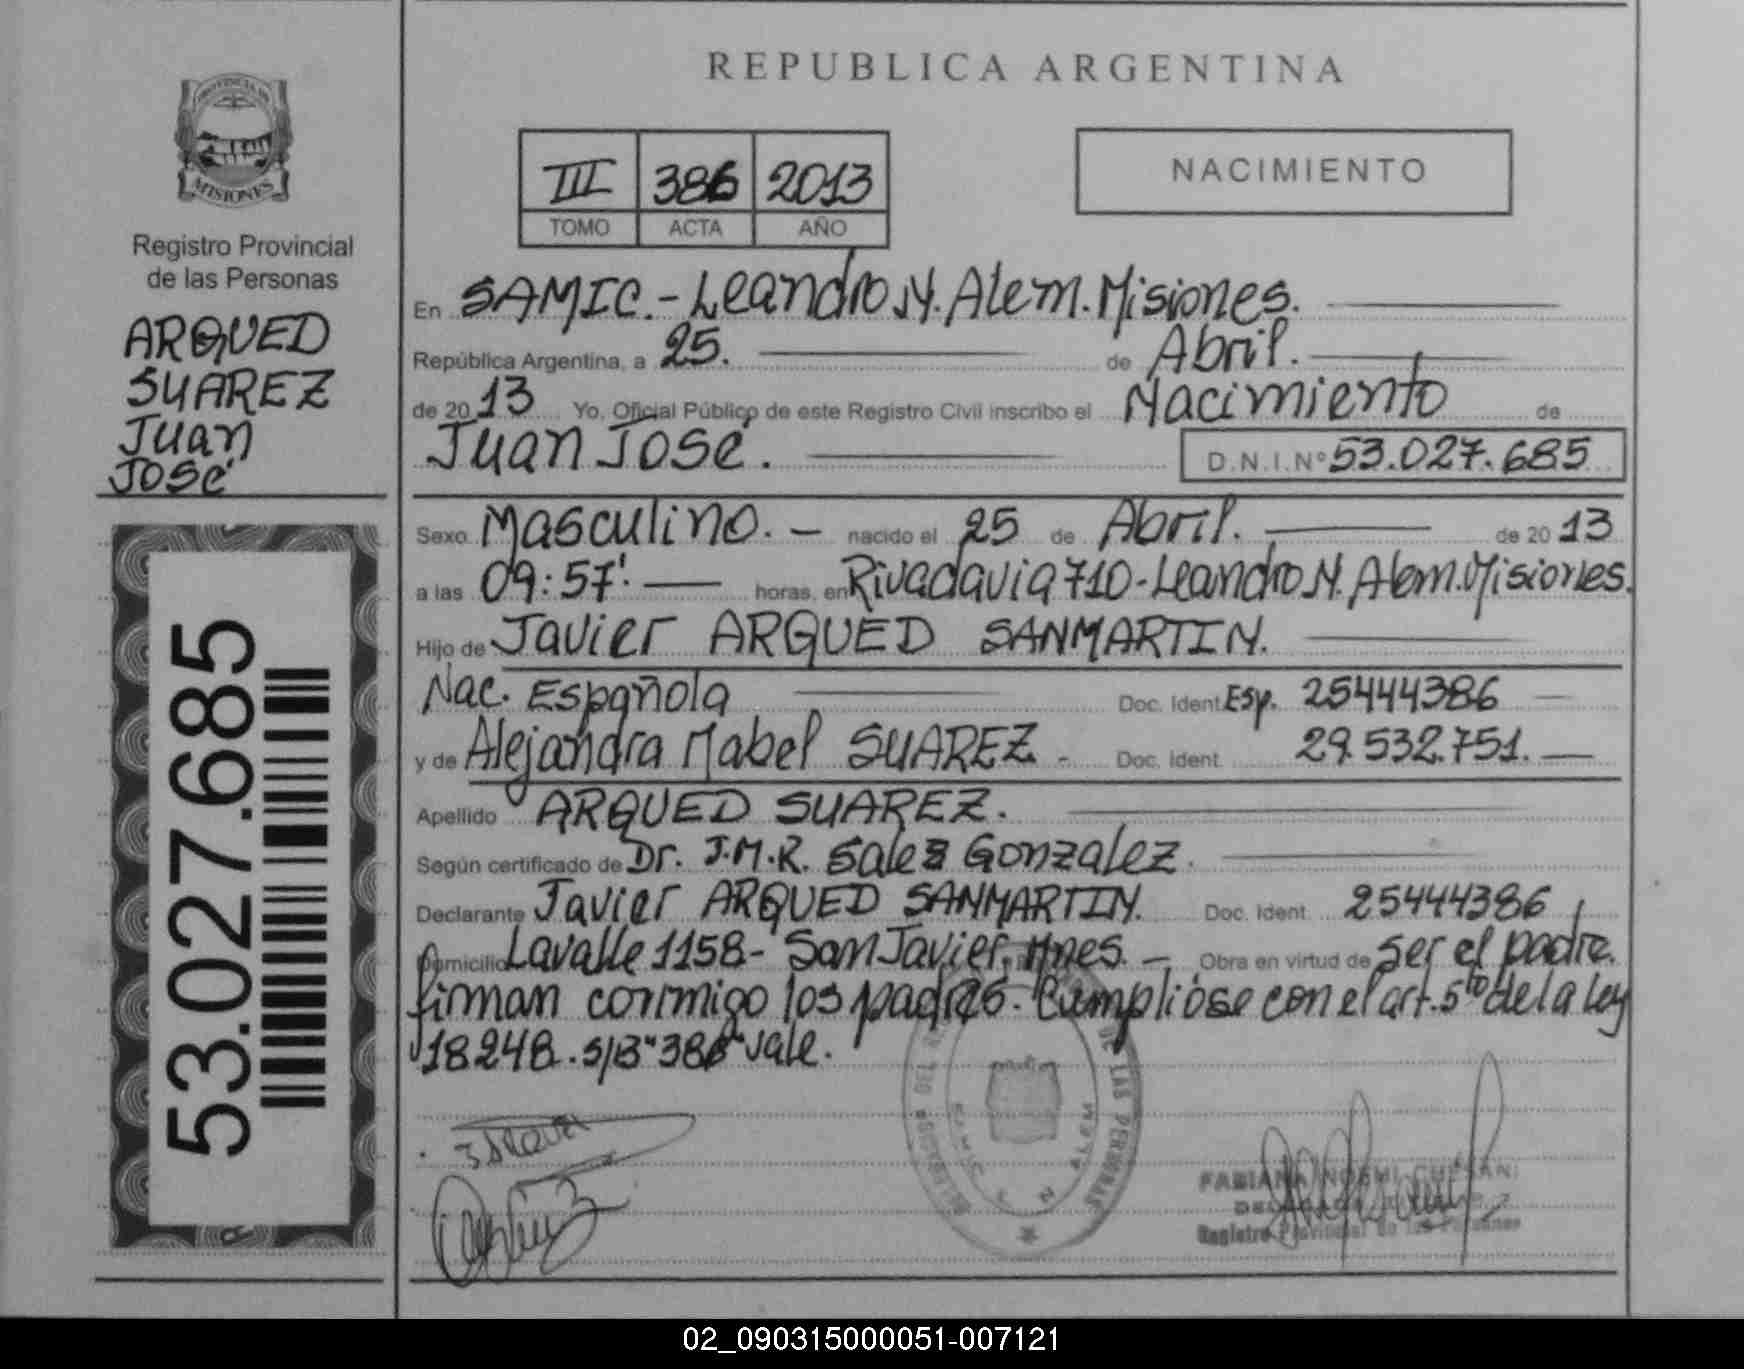 PROVINCIA DE
MISIONES
Registro Provincial
de las Personas
ARQUED
SUAREZ
Juan
José
53.027.685
REPUBLICA ARGENTINA
III 386 2013
TOMO ACTA AÑO
NACIMIENTO
En SAMIC.- Leandro N. Alem. Misiones.
República Argentina, a 25. de Abril.
de 2013 Yo, Oficial Público de este Registro Civil inscribo el Nacimiento de
Juan José. D.N.I.Nº 53.027.685
Sexo Masculino. - nacido el 25 de Abril. de 2013
a las 09:57'. horas, en Rivadavia 710-Leandro N. Alem. Misiones.
Hijo de Javier ARQUED SANMARTIN.
Nac. Española Doc. Ident. Esp. 25444386
y de Alejandra Mabel SUAREZ - Doc. Ident. 29.532.751.
Apellido ARQUED SUAREZ.
Según certificado de Dr. J.M.R. Salez Gonzalez.
Declarante Javier ARQUED SANMARTIN. Doc. Ident. 25444386
Domicilio Lavalle 1158- San Javier, Mnes. - Obra en virtud de ser el padre.
firman conmigo los padres. Cumplióse con el art. 5to de la Ley
18248. s/B "386" vale.
J ARQUED
DE LAS PERSONAS
SAMIC
L N ALEM
FABIANA NOEMI
Registro Provincial de las Personas
02_090315000051-007121